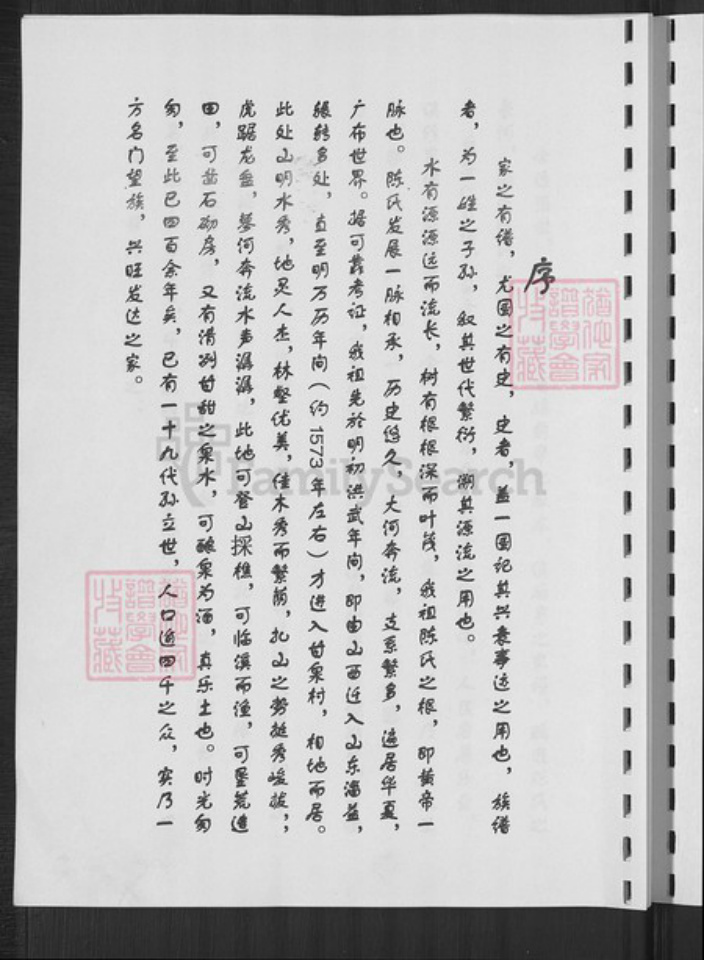 序
家之有谱，尤国之有史，史者，盖一国记其兴衰事迹之用也，族谱
者，为一姓之子孙，叙其世代繁衍，溯其源流之用也。
水有源源远而流长，树有根根深而叶茂，我祖陈氏之根，即黄帝一
脉也。陈氏发展一脉相承，历史悠久，大河奔流，支系繁多，遍居华夏，
广布世界。据可靠考证，我祖先於明初洪武年间，即由山西迁入山东淄益，
辗转多处，直至明万历年间（约1573年左右）才进入甘泉村，相地而居。
此处山明水秀，地灵人杰，林壑优美，佳木秀而繁荫，扎山之势挺秀峻拔，；
虎踞龙盘，蓼河奔流水声潺潺，此地可登山採樵，可临溪而渔，可垦荒造
田，可凿石砌房，又有清冽甘甜之泉水，可酿泉为酒，真乐土也。时光匆
匆，至此已四百余年矣，已有一十九代孙立世，人口逾四千之众，实乃一
方名门望族，兴旺发达之家。
猶他家
譜學會
收藏
猶他家
譜學會
收藏
FamilySearch